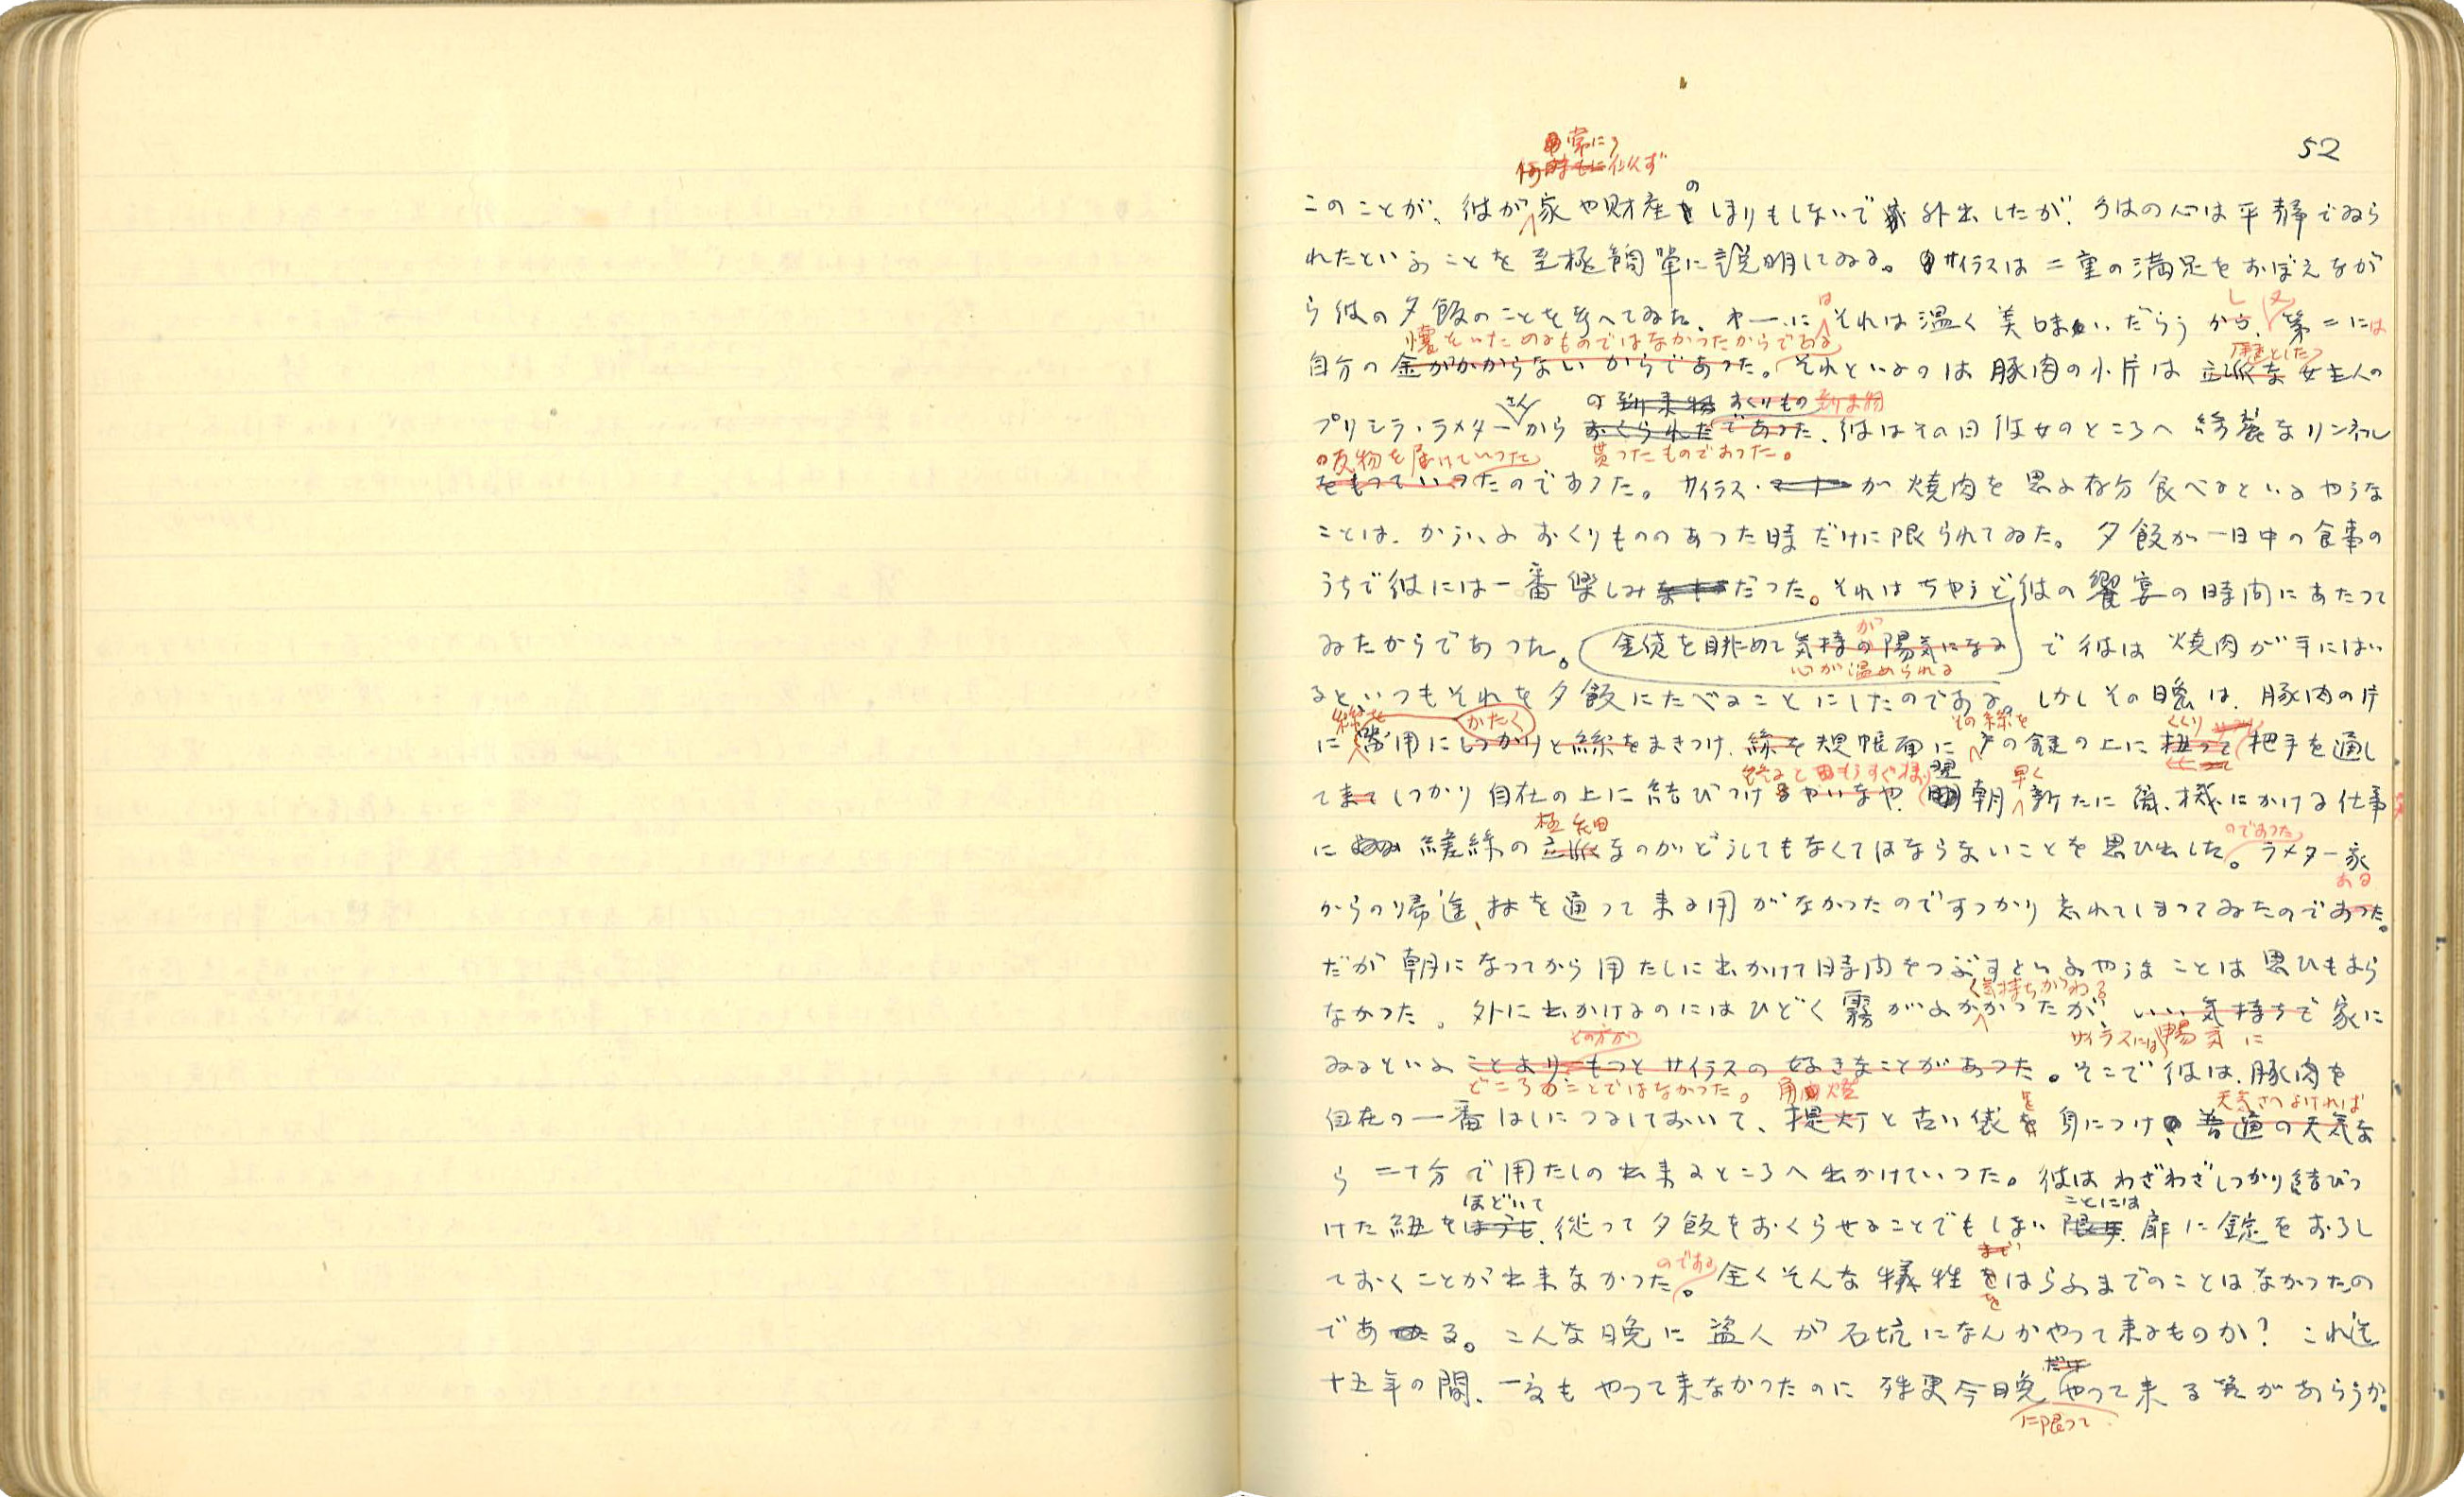 52
常に
何時もに似ず
このことが、彼が家や財産のしまりもしないで外出したが、彼の心は平静でゐら
れたといふことを至極簡単に説明してゐる。サイラスは二重の満足をおぼえなが
は し 又
ら彼の夕飯のことを考へてゐた。第一にそれは温く美味いだらうから、第二には
懐をいためるものではなかつたからである 凜とした
自分の金がかからないからであつた。それといふのは豚肉の小片は立派な女主人の
さん の到来物 おくりもの 到来物
プリシラ・ラメターから おくられたであつた、彼はその日彼女のところへ綺麗なリンネル
の反物を届けていつた 貰つたものであつた。
をもつていつたのであつた。サイラス・マーナーが焼肉を思ふ存分食べるといふやうな
ことは、かういふおくりもののあつた時だけに限られてゐた。夕飯が一日中の食事の
うちで彼には一番楽しみだつた。それはちやうど彼の饗宴の時間にあたつて
が
ゐたからであつた。金貨を眺めて気持の陽気になる で彼は焼肉が手にはい
心が温められる
るといつもそれを夕飯にたべることにしたのである。しかしその晩は、豚肉の片
絲を かたく その絲を くくり
に器用にしつかりと絲をまきつけ、絲を規帳面に戸の鍵の上に捩つて把手を通し
終ると もうすぐ様 翌 早く
てまてしつかり自在の上に結びつけるやいなや、朝新たに織機にかける仕事
極細 のであつた
に 縒絲の立派なのがどうしてもなくてはならないことを思ひ出した。ラメター家
ある
からの帰途、村を通つて来る用がなかつたのですつかり忘れてしまつてゐたのであつた。
だが朝になつてから用たしに出かけて時間をつぶすといふやうなことは思ひもよら
く気持ちがわる
なかつた。外に出かけるのにはひどく霧がふかかつたが、いい気持ちで家に
その方が サイラスには 暢気に
ゐるといふことよりもつとサイラスの好きなことがあつた。そこで彼は、豚肉を
どころのことではなかつた。 角燈 を 天気さへよければ
自在の一番はしにつるしておいて、提灯と古い袋を身につけ、普通の天気な
ら二十分で用たしの出来るところへ出かけていつた。彼はわざわざしつかり結びつ
ほどいて ことには
けた紐をほうも、従つて夕飯をおくらせることでもしない限り、扉に錠をおろし
のである まで
ておくことが出来なかつた。全くそんな犠牲をはらふまでのことはなかつたの
を
である。こんな晩に盗人が石坑になんかやつて来るものか? これ迄
だけ
十五年の間、一度もやつて来なかつたのに殊更今晩やつて来る筈があらうか。
に限つて